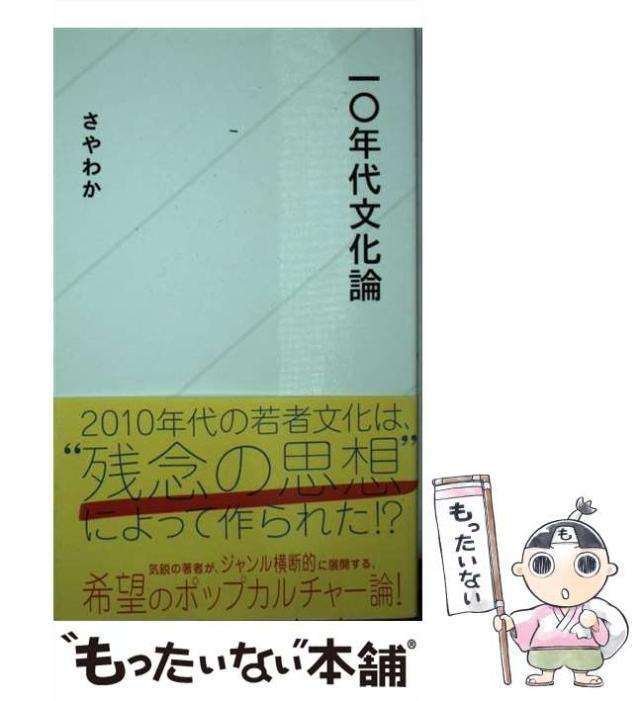 一〇年代文化論
さやわか
2010年代の若者文化は、
“残念の思想”
によって作られた!?
気鋭の著者が、ジャンル横断的に展開する、
希望のポップカルチャー論!
もったいない
も
“もったいない”本舗®